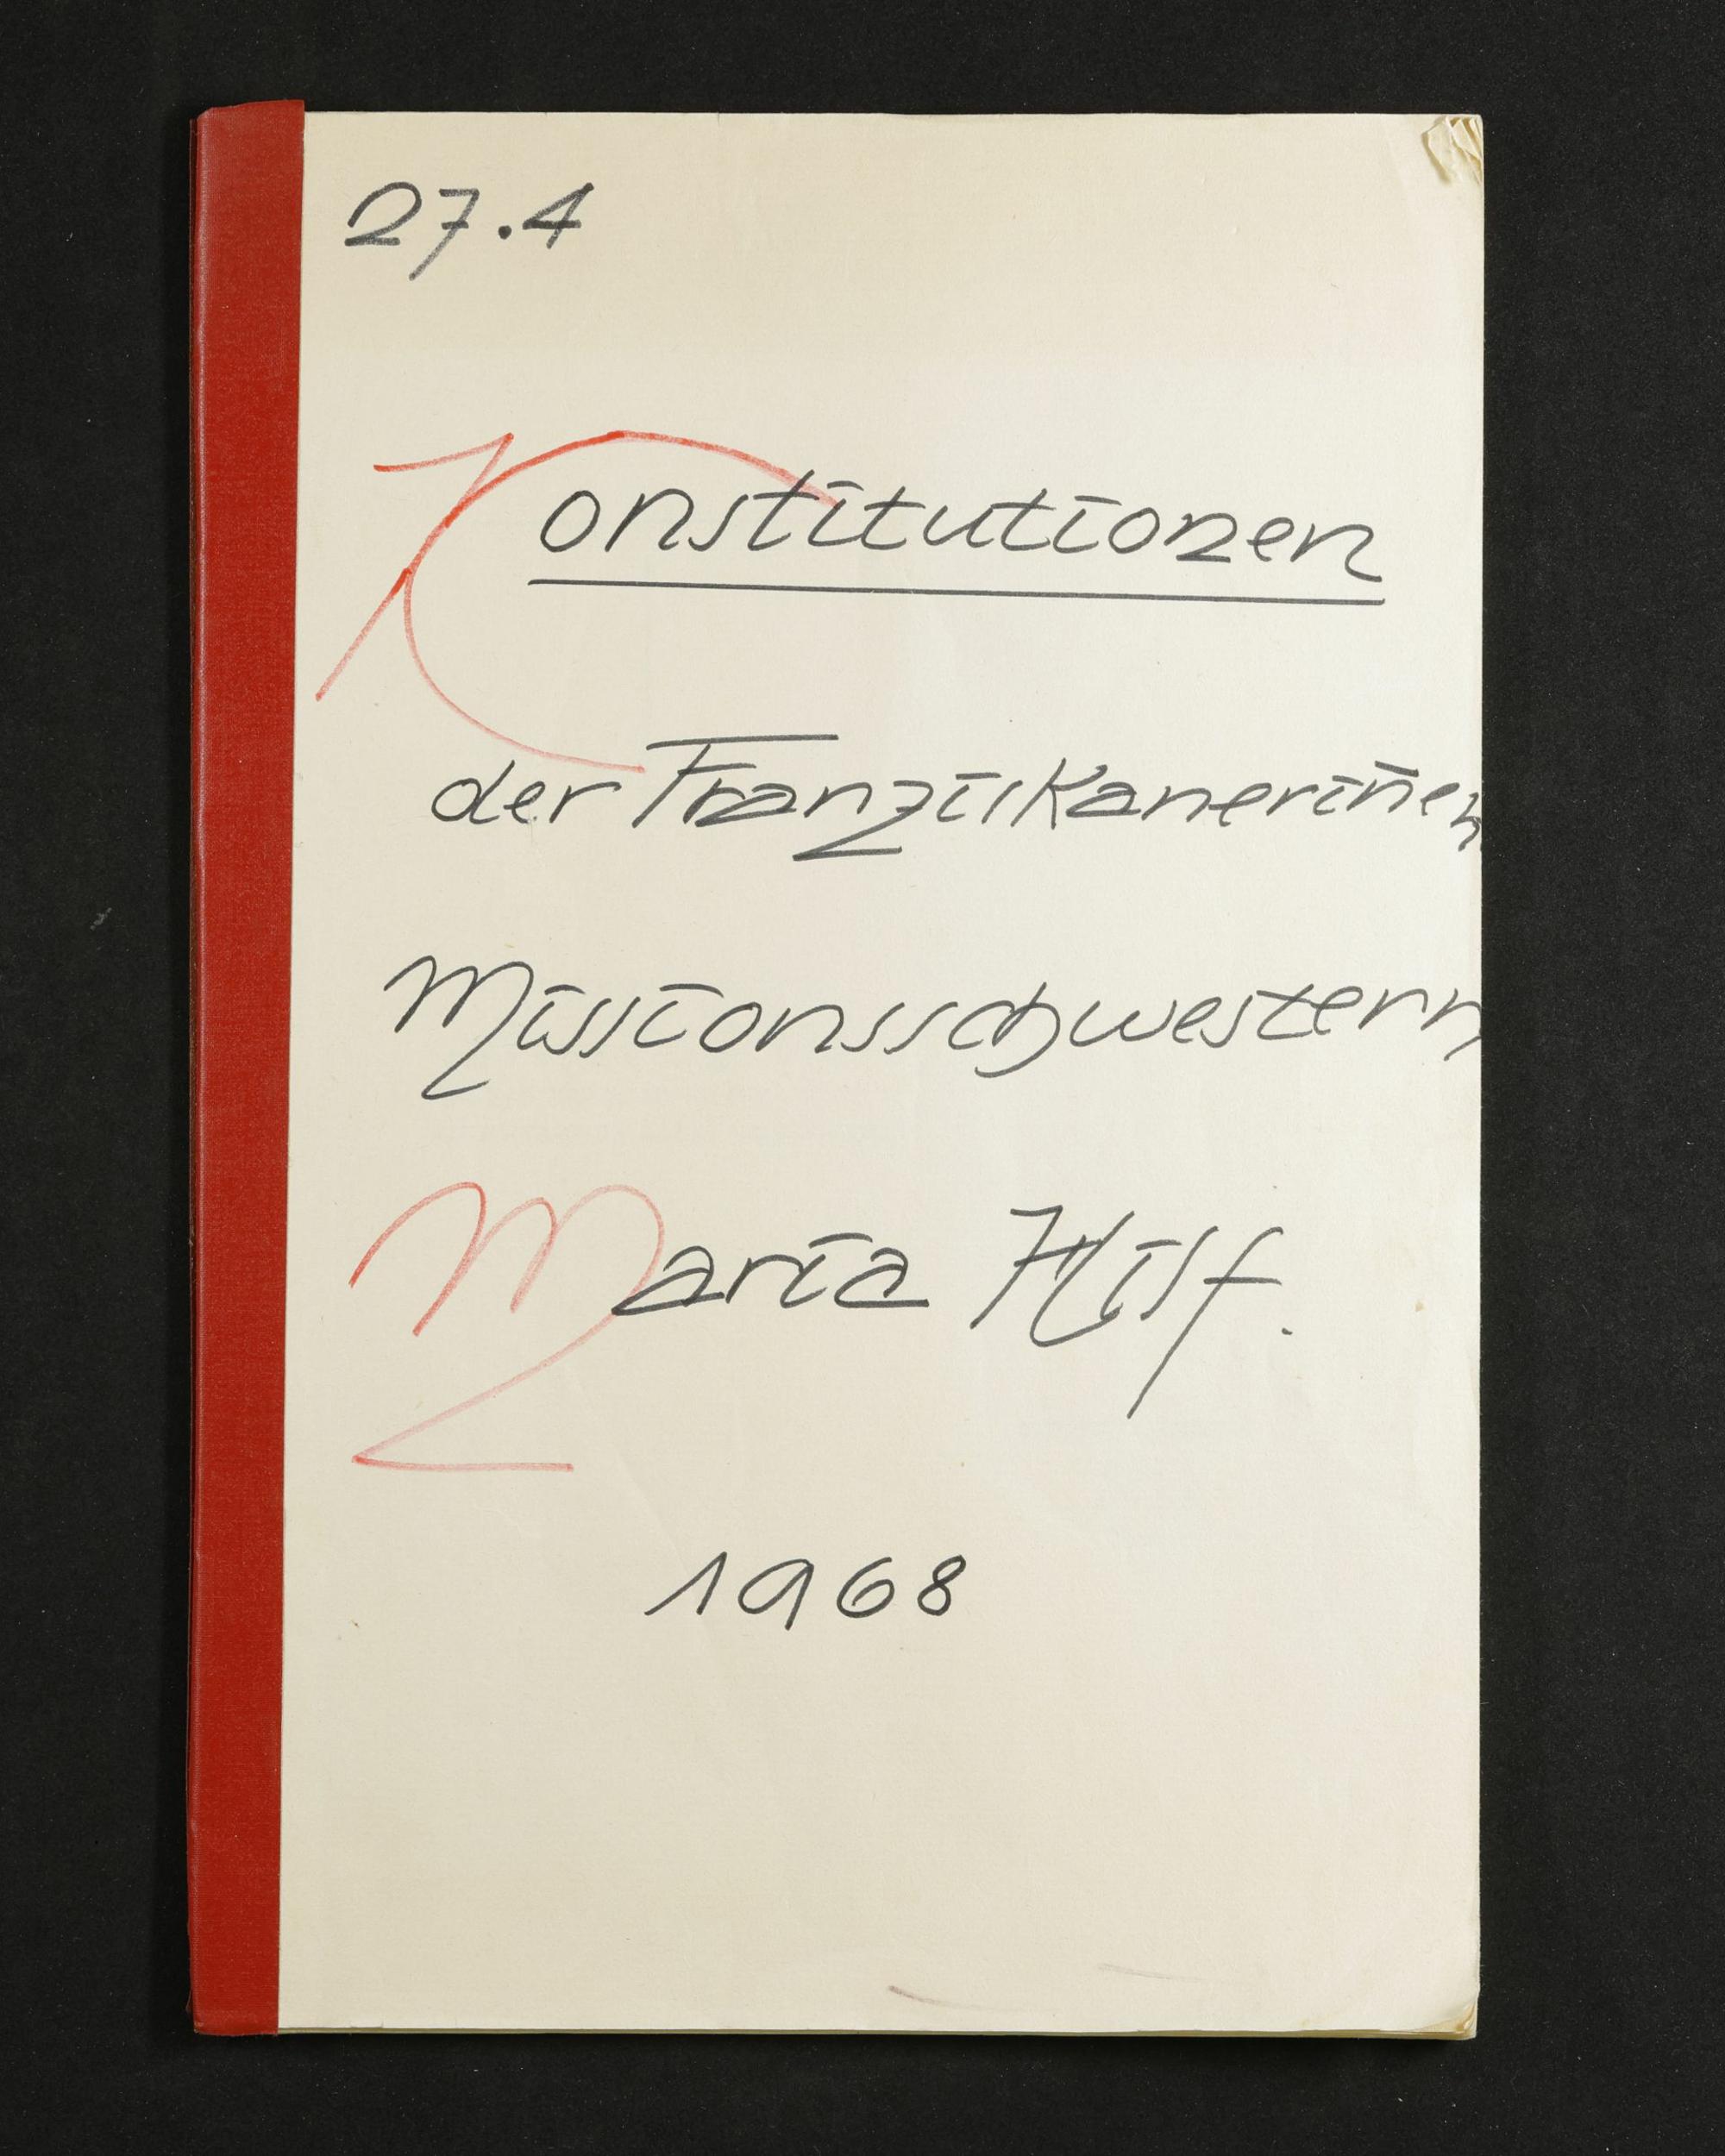 27.4
Konstitutionen
der Franziskanerin̄en
Missionsschwestern
Maria Hilf.
1968